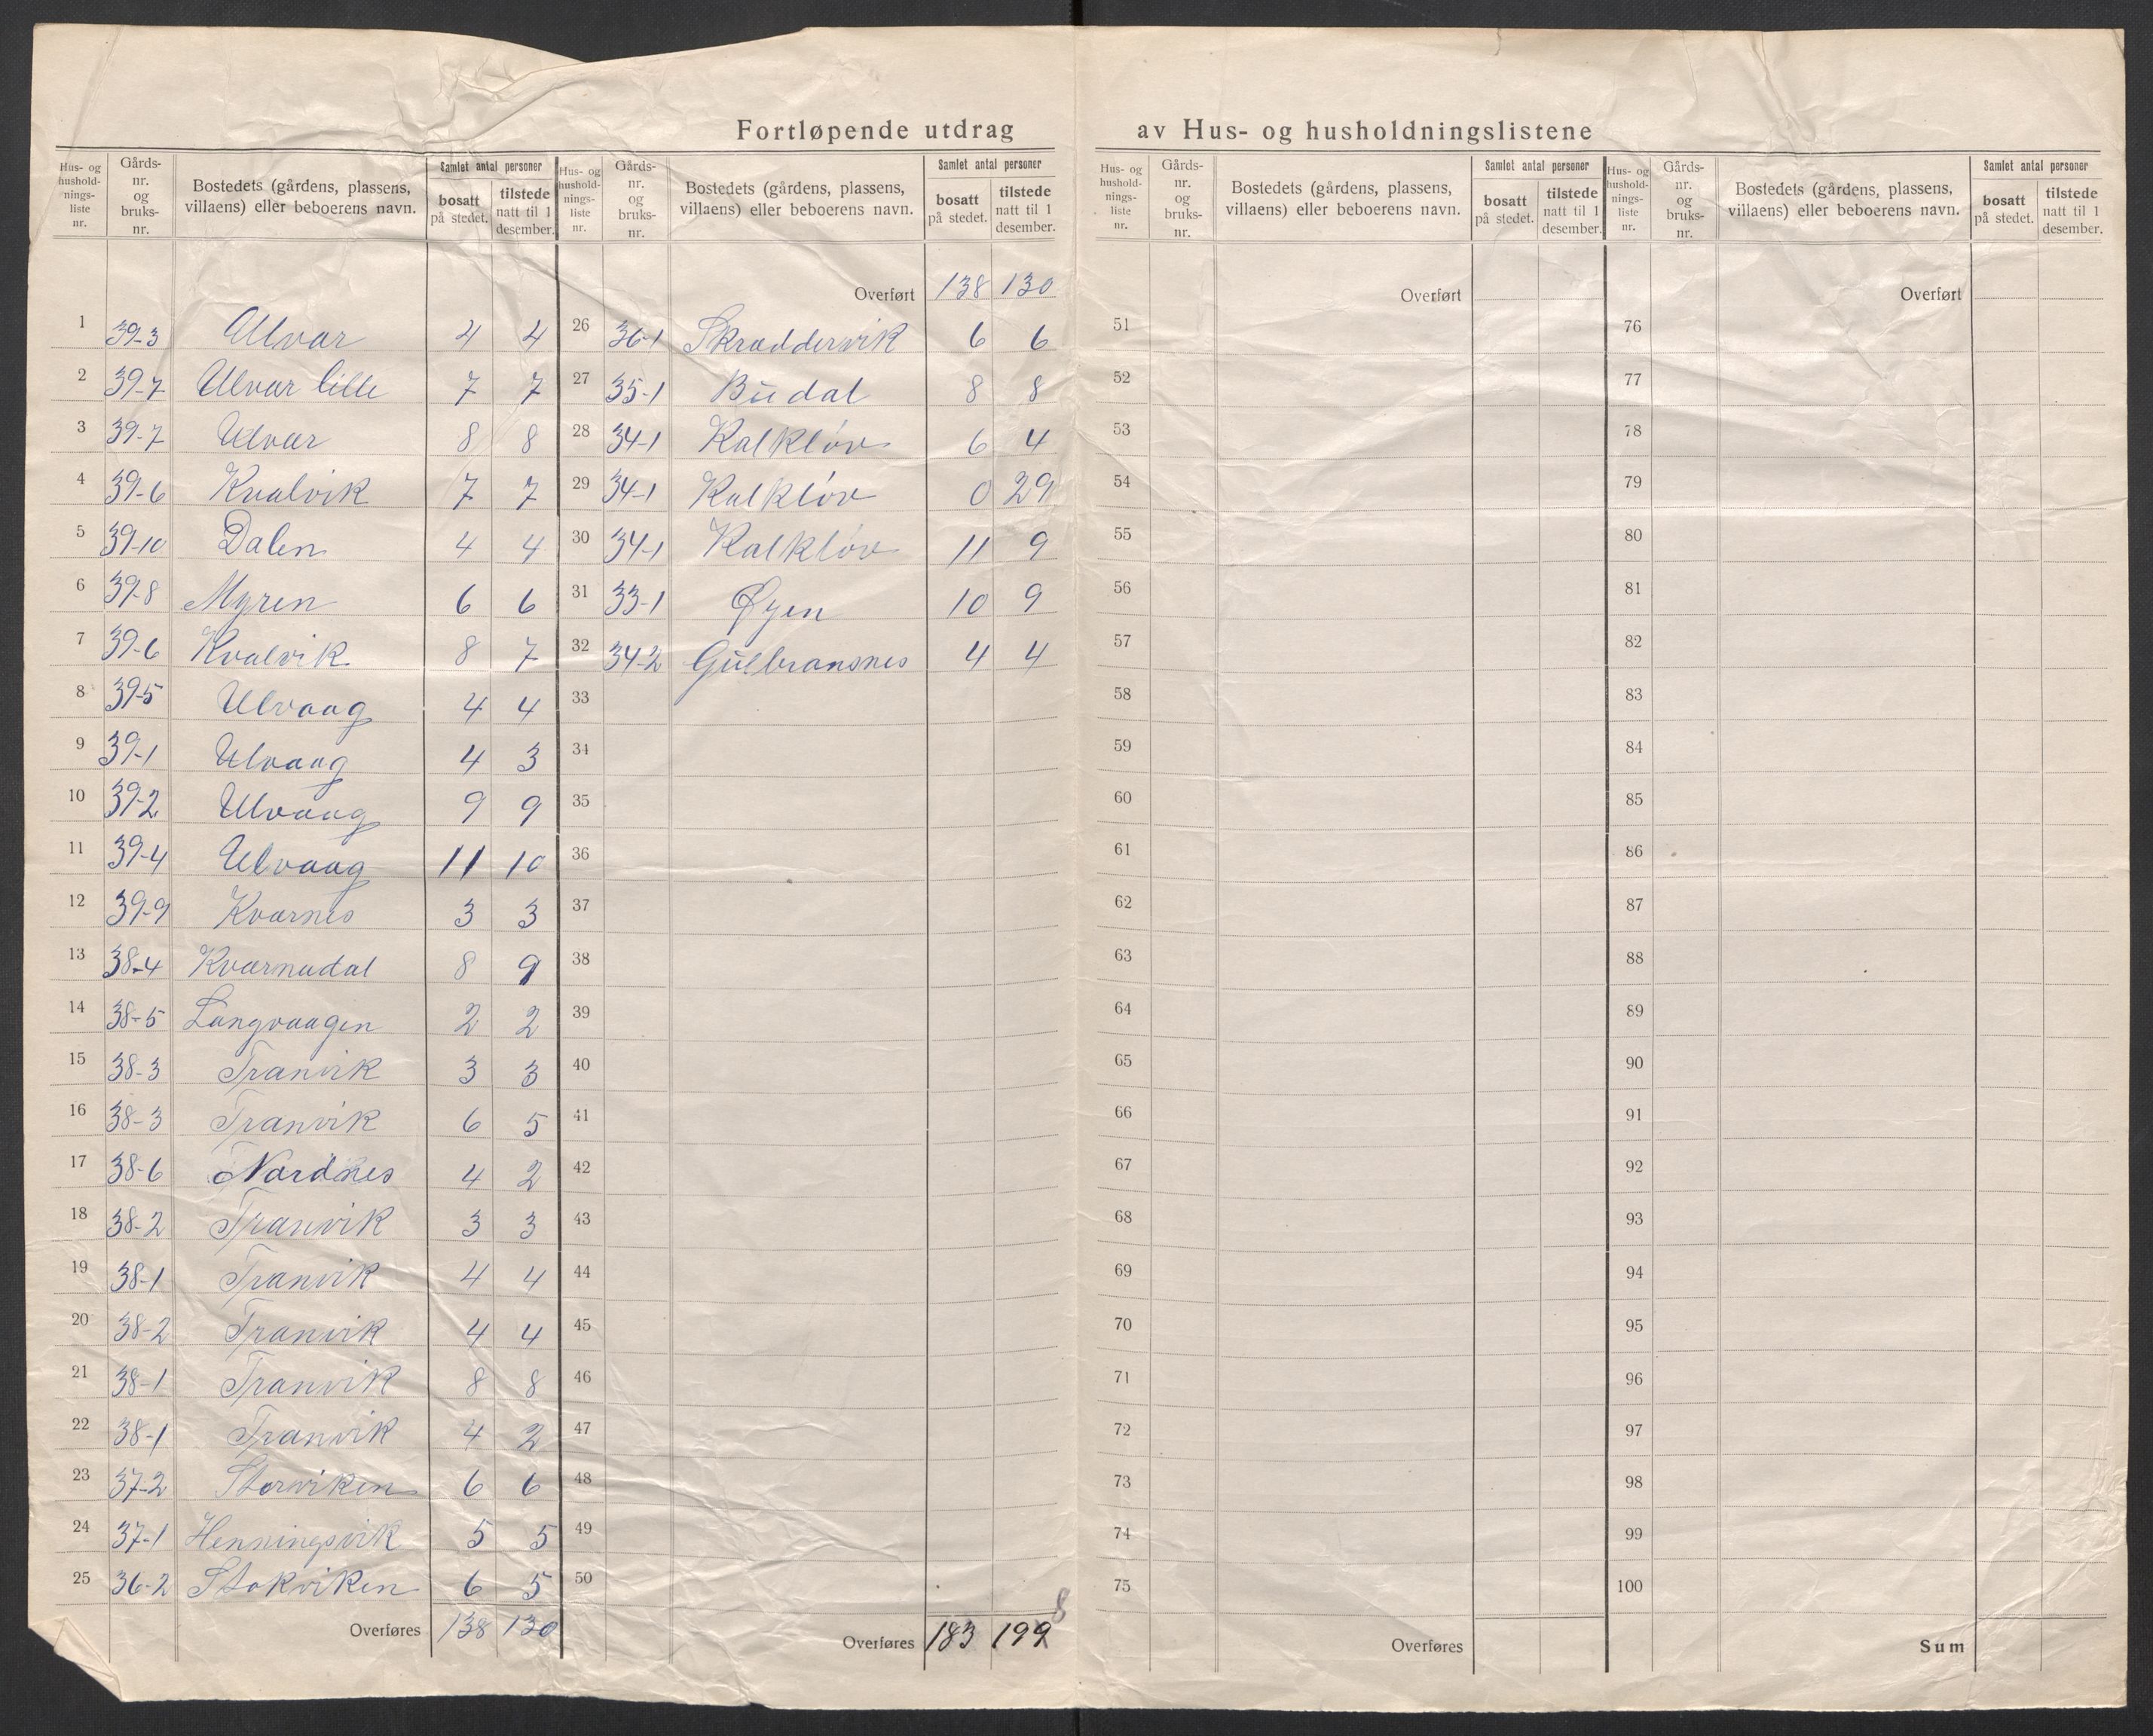 Fortløpende utdrag av Hus- og husholdningslistene
Hus- og husholdnings-liste nr. | Gårds-nr. og bruks-nr. | Bostedets (gårdens, plassens, villaens) eller beboerens navn. | Samlet antal personer | bosatt på stedet. | tilstede natt til 1 desember.
1 39-3 Ulvar 4 4
2 39-7 Ulvar lille 7 7
3 39-7 Ulvar 8 8
4 39-6 Kvalvik 7 7
5 39-10 Dalen 4 4
6 39-8 Myren 6 6
7 39-6 Kvalvik 8 7
8 39-5 Ulvaag 4 4
9 39-1 Ulvaag 4 3
10 39-2 Ulvaag 9 9
11 39-4 Ulvaag 11 10
12 39-9 Kvarnes 3 3
13 38-4 Kvarnadal 8 9
14 38-5 Langvaagen 2 2
15 38-3 Tranvik 3 3
16 38-3 Tranvik 6 5
17 38-6 Nordnes 4 2
18 38-2 Tranvik 3 3
19 38-1 Tranvik 4 4
20 38-2 Tranvik 4 4
21 38-1 Tranvik 8 8
22 38-1 Tranvik 4 2
23 37-2 Storviken 6 6
24 37-1 Henningsvik 5 5
25 36-2 Stokviken 6 5
Overføres 138 130
Hus- og husholdnings-liste nr. | Gårds-nr. og bruks-nr. | Bostedets (gårdens, plassens, villaens) eller beboerens navn. | Samlet antal personer | bosatt på stedet. | tilstede natt til 1 desember.
Overført 138 130
26 36-1 Skraddervik 6 6
27 35-1 Budal 8 8
28 34-1 Kalkløv 6 4
29 34-1 Kalkløv 0 29
30 34-1 Kalkløv 11 9
31 33-1 Øyen 10 9
32 34-2 Gulbransnes 4 4
33
34
35
36
37
38
39
40
41
42
43
44
45
46
47
48
49
50
Overføres 183 199 8
Hus- og husholdnings-liste nr. | Gårds-nr. og bruks-nr. | Bostedets (gårdens, plassens, villaens) eller beboerens navn. | Samlet antal personer | bosatt på stedet. | tilstede natt til 1 desember.
Overført
51
52
53
54
55
56
57
58
59
60
61
62
63
64
65
66
67
68
69
70
71
72
73
74
75
Overføres
Hus- og husholdnings-liste nr. | Gårds-nr. og bruks-nr. | Bostedets (gårdens, plassens, villaens) eller beboerens navn. | Samlet antal personer | bosatt på stedet. | tilstede natt til 1 desember.
Overført
76
77
78
79
80
81
82
83
84
85
86
87
88
89
90
91
92
93
94
95
96
97
98
99
100
Sum